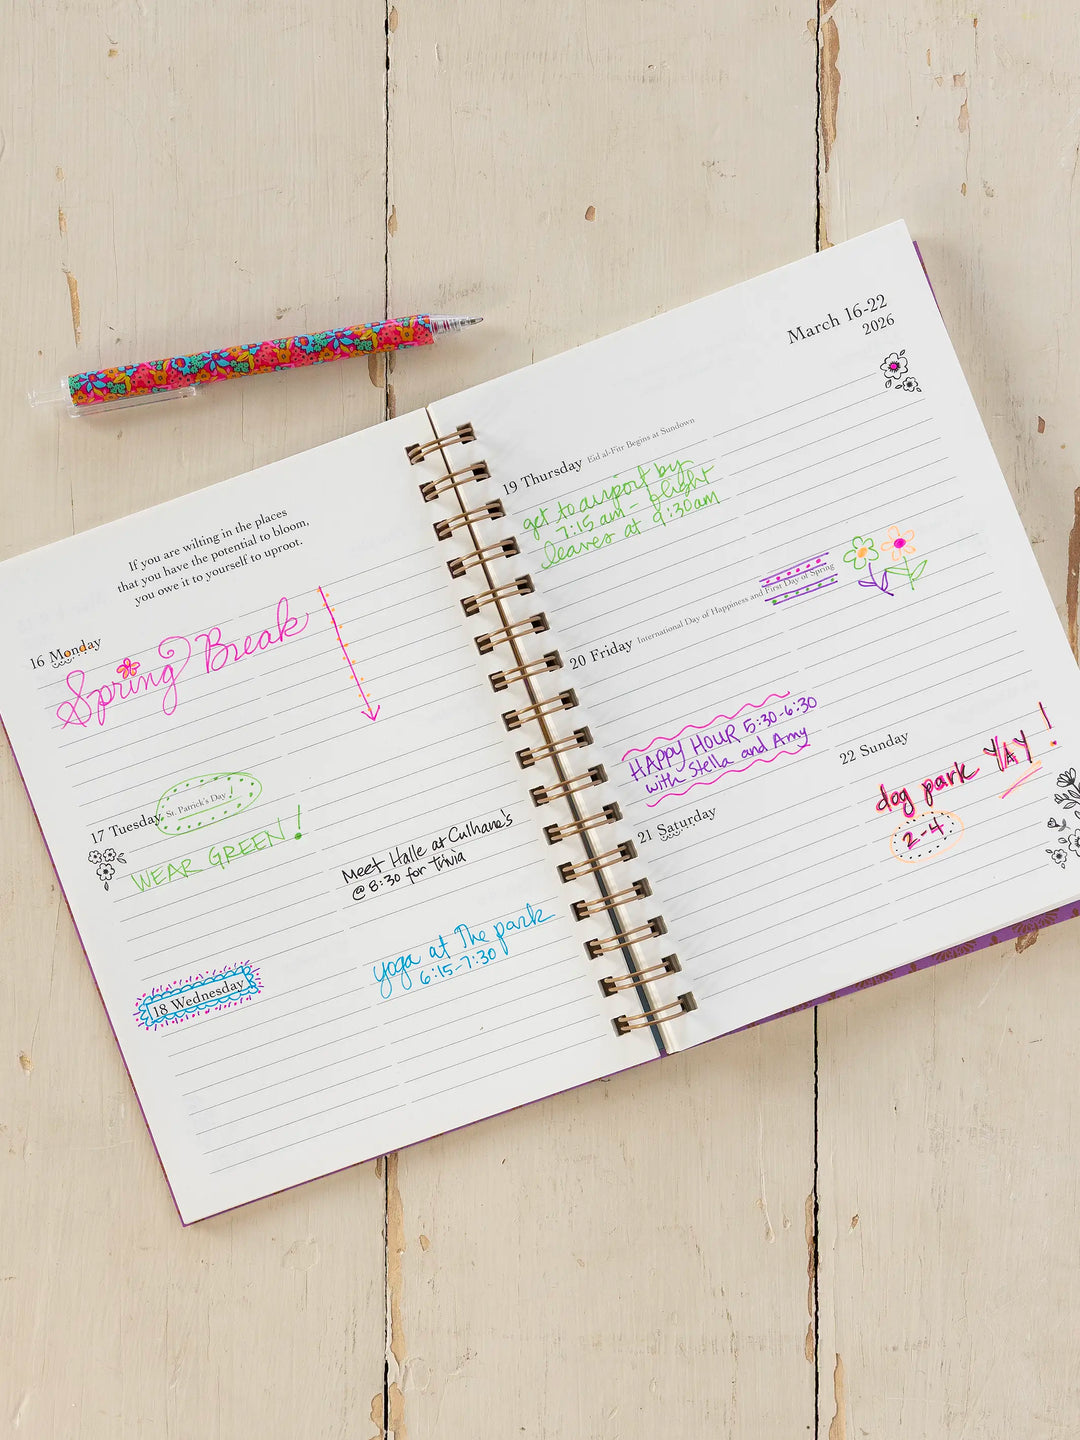 If you are wilting in the places
that you have the potential to bloom,
you owe it to yourself to uproot.
16 Monday
Spring Break
17 Tuesday St. Patrick's Day!
WEAR GREEN!
Meet Halle at Culhane's
@ 8:30 for trivia
18 Wednesday
yoga at The park
6:15-7:30
March 16-22
2026
19 Thursday Eid al-Fitr Begins at Sundown
get to airport by
7:15 am - flight
leaves at 9:30am
20 Friday International Day of Happiness and First Day of Spring
HAPPY HOUR 5:30-6:30
with Stella and Amy
21 Saturday
22 Sunday
dog park YAY!
2-4